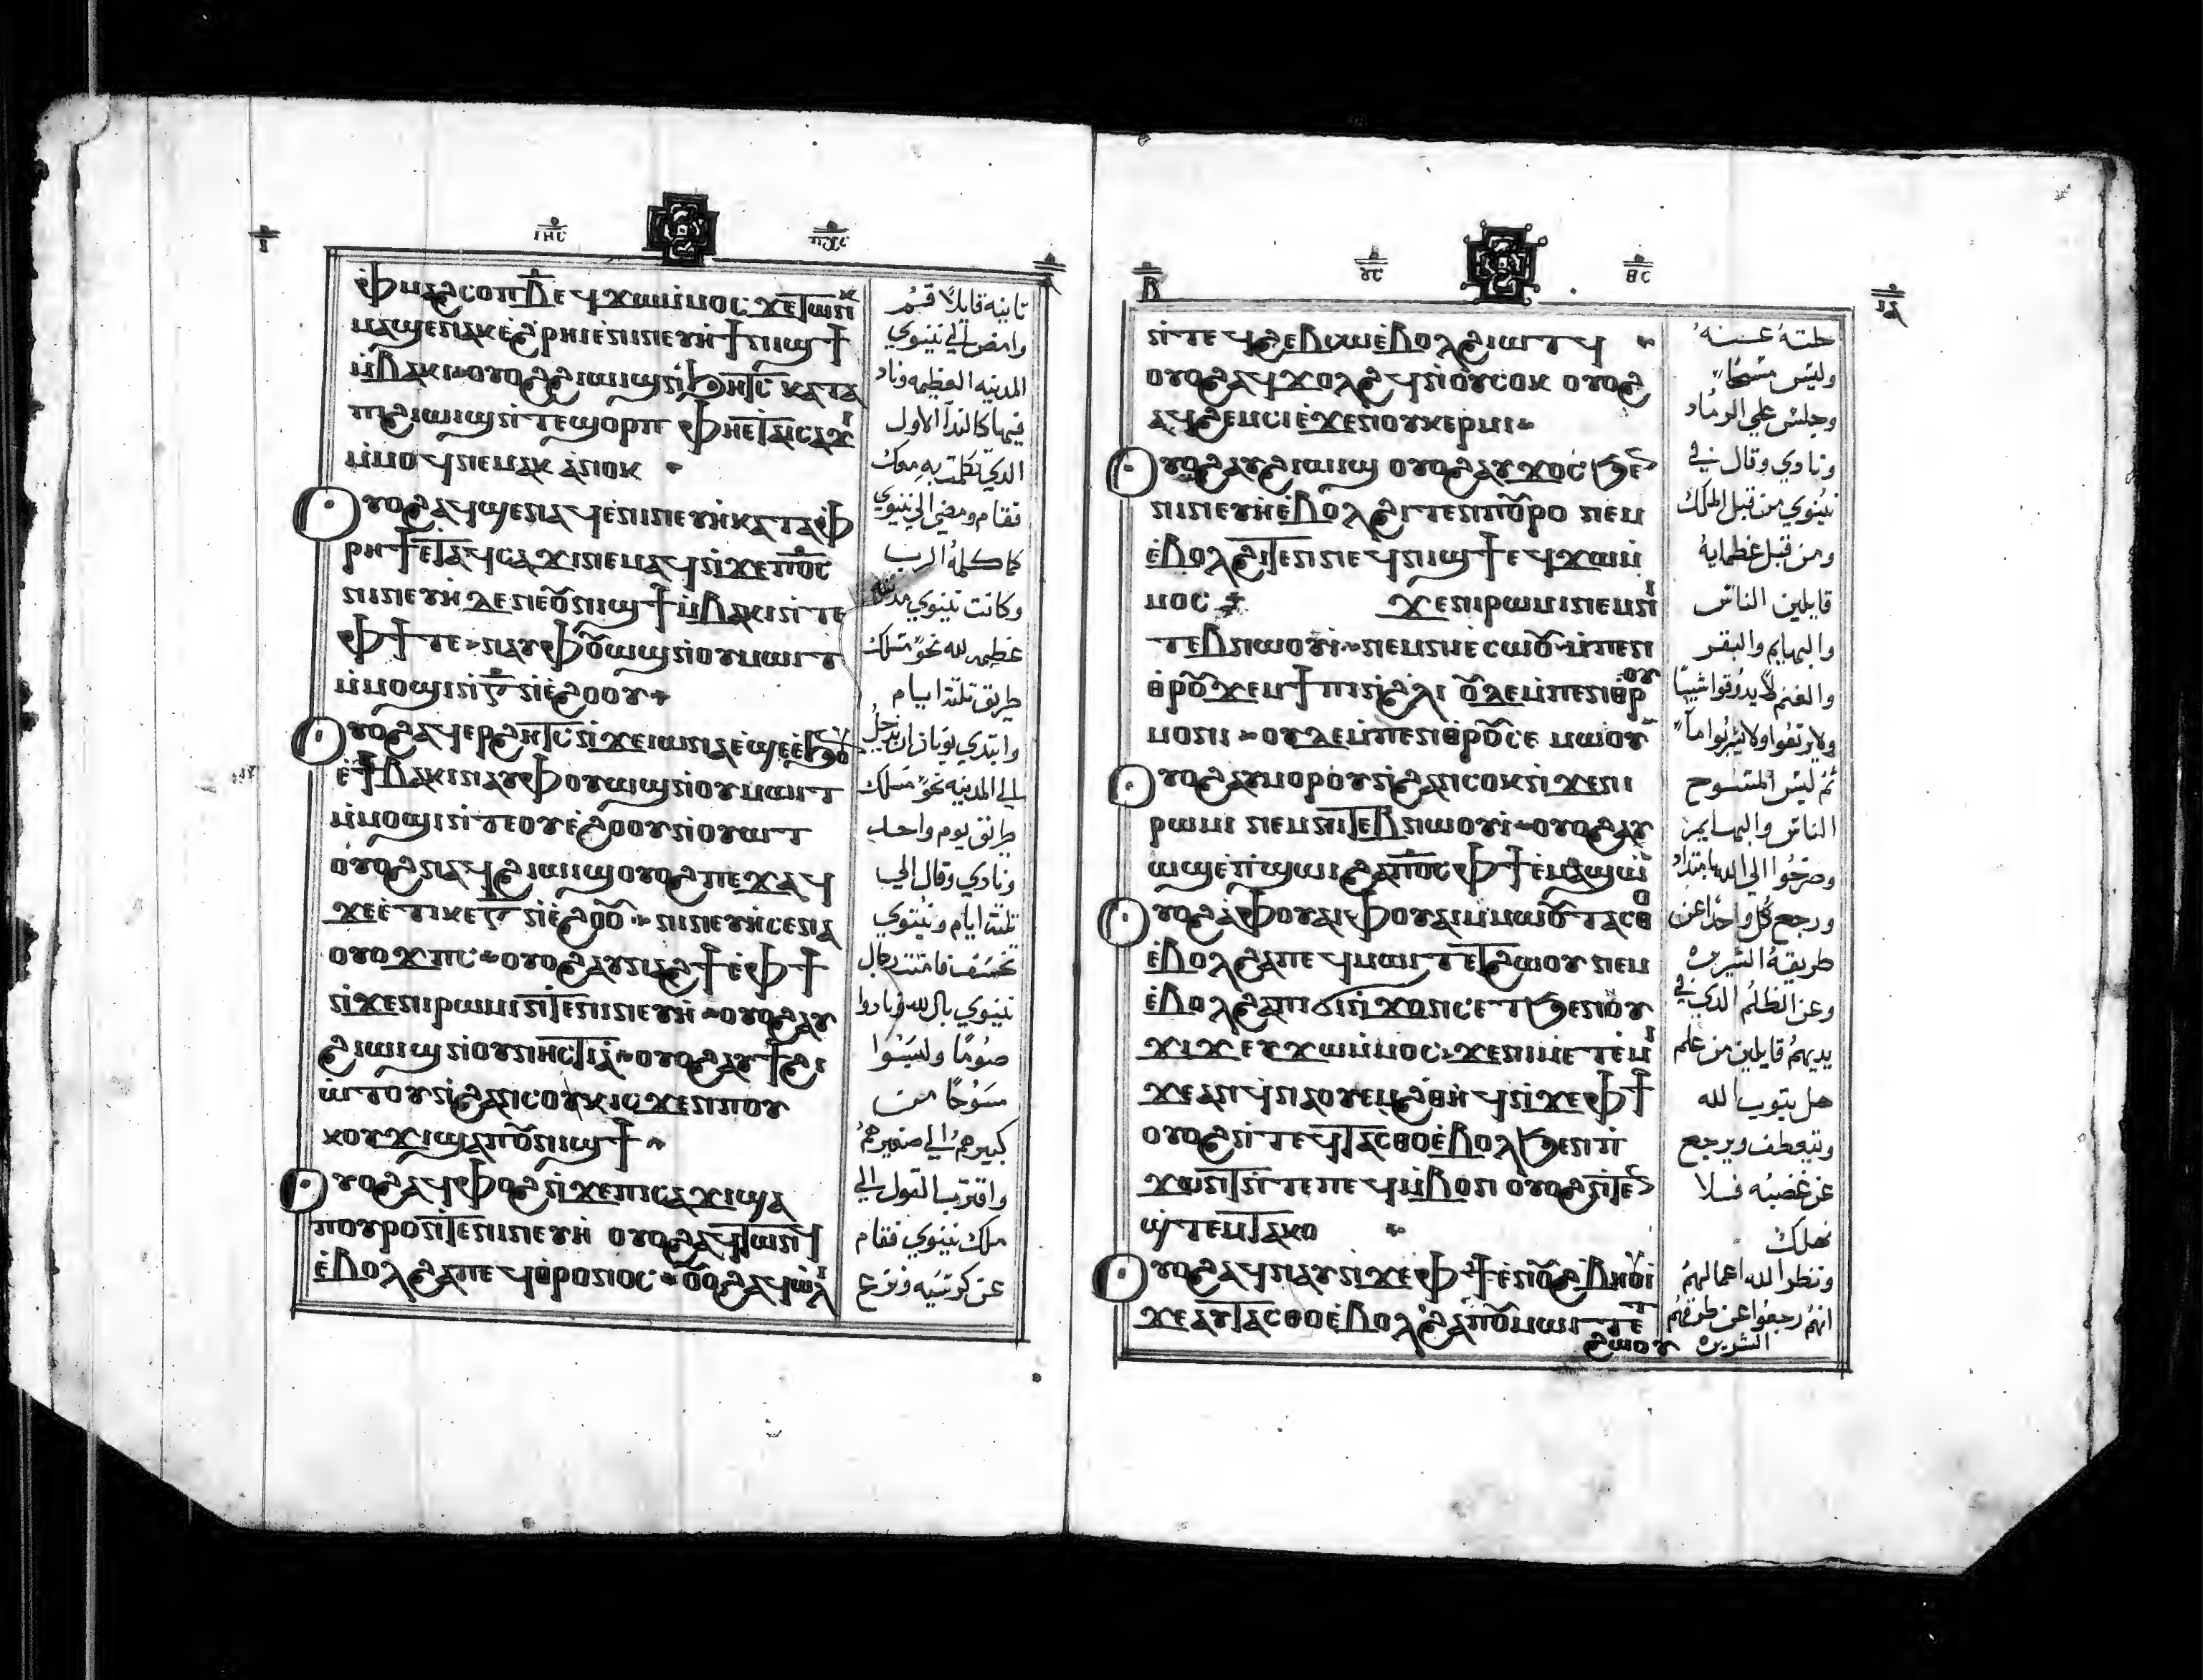 ⲓ
ⲓⲏⲥ ⲡⲭⲥ
ⲫⲙⲁϩⲥⲟⲡⲃ̅ ⲉϥϫⲱⲙ̀ⲙⲟⲥ ϫⲉⲧⲱⲛⲕ
ⲙⲁϣⲉⲛⲁⲕ ⲉ̀ϩ̀ⲣⲏⲓ ⲉⲛⲓⲛⲉⲩⲏ̀ ϯⲛⲓϣϯ
ⲙ̀ⲃⲁⲕⲓ ⲟⲩⲟϩ ϩⲓⲱⲓϣ ⲛ̀ϧⲏⲧⲥ ⲕⲁⲧⲁ
ⲡϩⲓⲱⲓϣ ⲛ̀ⲧⲉϣⲟⲣⲡ ⲫⲏⲉⲧⲁⲓⲥⲁϫⲓ
ⲙ̀ⲙⲟϥ ⲛⲉⲙⲁⲕ ⲁⲛⲟⲕ
ⲟⲩⲟϩ ⲁϥϣⲉⲛⲁϥ ⲉ̀ⲛⲓⲛⲉⲩⲏ̀ ⲕⲁⲧⲁⲫ
ⲣⲏϯ ⲉⲧⲁϥⲥⲁϫⲓ ⲛⲉⲙⲁϥ ⲛ̀ϫⲉⲡⲟ̅ⲥ
ⲛⲓⲛⲉⲩⲏ̀ ⲇⲉ ⲛⲉⲟⲩⲛⲓϣϯ ⲙ̀ⲃⲁⲕⲓ ⲛ̀ⲧⲉ
ⲫϯ ⲧⲉ ⲛⲁⲩⲫⲟⲩⲱϣ ⲛ̀ⲟⲩⲙⲱⲓⲧ
ⲙ̀ⲙⲟϣⲓ ⲛ̀ⲅ̅ ⲛ̀ⲉ̀ϩⲟⲟⲩ
ⲟⲩⲟϩ ⲁϥⲉⲣϩⲏⲧⲥ ⲛ̀ϫⲉⲓⲱⲛⲁ ⲉ̀ϣⲉ ⲉ̀ϧⲟⲩ
ⲉ̀ϯⲃⲁⲕⲓ ⲛⲁⲩⲫⲟⲩⲱϣ ⲛ̀ⲟⲩⲙⲱⲓⲧ
ⲙ̀ⲙⲟϣⲓ ⲛ̀ⲧⲉⲟⲩⲉ̀ϩⲟⲟⲩ ⲛ̀ⲟⲩⲱⲧ
ⲟⲩⲟϩ ⲛⲁϥϩⲓⲱⲓϣ ⲟⲩⲟϩ ⲡⲉϫⲁϥ
ϫⲉ ⲉ̀ⲧⲓⲕⲉⲅ̅ ⲛ̀ⲉ̀ϩⲟⲟⲩ ⲛⲓⲛⲉⲩⲏ̀ ⲥⲉⲛⲁ
ⲟⲩⲟϫⲡⲥ ⲟⲩⲟϩ ⲁⲩⲛⲁϩϯ ⲉ̀ⲫϯ
ⲛ̀ϫⲉⲛⲓⲣⲱⲙⲓ ⲛ̀ⲧⲉⲛⲓⲛⲉⲩⲏ̀ ⲟⲩⲟϩ ⲁⲩ
ϩⲓⲱⲓϣ ⲛ̀ⲟⲩⲛⲏⲥⲧⲓⲁ ⲟⲩⲟϩ ⲁⲩϯϩⲓ
ⲱ̀ⲧⲟⲩ ⲛ̀ϩⲁⲛⲥⲟⲩⲕⲓⲥϫⲉⲛ ⲡⲟⲩ
ⲕⲟⲩϫⲓ ϣⲁ ⲡⲟⲩⲛⲓϣϯ
ⲟⲩⲟϩ ⲁϥⲫⲟϩ ⲛ̀ϫⲉⲡⲓⲥⲁϫⲓ ϣⲁ
ⲡⲟⲩⲣⲟ ⲛ̀ⲧⲉⲛⲓⲛⲉⲩⲏ̀ ⲟⲩⲟϩ ⲁϥⲧⲱⲛϥ
ⲉ̀ⲃⲟⲗ ϩⲁ ⲡⲉϥⲑⲣⲟⲛⲟⲥ ⲟⲩⲟϩ ⲁϥⲱ̀ⲗⲓ
ثانيه قايلاً قم
وامض الي نينوي
المدينه العظيمه وناد
فيها كالندآ الاول
الذي تكلمت به معك
فقام ومضي الي نينوي
كما كلمهُ الرب
وكانت نينوي مدينه
عظيمه لله نحو مسلك
طريق ثلثة ايام
وابتدي يونان ان يدخل
الي المدينه نحو مسلك
طريق يوم واحد
ونادي وقال الي
ثلثة ايام ونينوي
تخسف فامنت رجال
نينوي بالله ونادوا
صومًا ولبسوا
مسوحًا من
كبيرهم الي صغيرهم
واقترب القول الي
ملك نينوي فقام
عن كرسيه ونزع
ⲃ
ⲩⲥ ⲑⲥ
ⲓⲁ
ⲛ̀ⲧⲉϥϩⲉⲃⲥⲱ ⲉ̀ⲃⲟⲗ ϩⲓⲱⲧϥ
ⲟⲩⲟϩ ⲁϥϫⲟⲗϩϥ ⲛ̀ⲟⲩⲥⲟⲕ ⲟⲩⲟϩ
ⲁϥϩⲉⲙⲥⲓ ⲉ̀ϫⲉⲛ ⲟⲩⲕⲉⲣⲙⲓ
ⲟⲩⲟϩ ⲁⲩϩⲓⲱⲓϣ ⲟⲩⲟϩ ⲁⲩϫⲟⲥ ϧⲉⲛ
ⲛⲓⲛⲉⲩⲏ̀ ⲉ̀ⲃⲟⲗ ϩⲓⲧⲉⲛ ⲡⲟⲩⲣⲟ ⲛⲉⲙ
ⲉ̀ⲃⲟⲗ ϩⲓⲧⲉⲛ ⲛⲉϥⲛⲓϣϯ ⲉϥϫⲱⲙ̀
ⲙⲟⲥ ϫⲉⲛⲓⲣⲱⲙⲓ ⲛⲉⲙⲛⲓ
ⲧⲉⲃⲛⲱⲟⲩⲓ̀ ⲛⲉⲙⲛⲓⲉ̀ⲥⲱⲟⲩ ⲙ̀ⲡⲉⲛ
ⲑⲣⲟⲩϫⲉⲙϯⲡⲓ ⲛ̀ϩ̀ⲗⲓ ⲟⲩⲇⲉ ⲙ̀ⲡⲉⲛⲑⲣⲟⲩ
ⲙⲟⲛⲓ ⲟⲩⲇⲉ ⲙ̀ⲡⲉⲛⲑⲣⲟⲩⲥⲉ ⲙⲱⲟⲩ
ⲟⲩⲟϩ ⲁⲩⲙⲟⲣⲟⲩ ⲛ̀ϩⲁⲛⲥⲟⲕ ⲛ̀ϫⲉⲛⲓ
ⲣⲱⲙⲓ ⲛⲉⲙⲛⲓⲧⲉⲃⲛⲱⲟⲩⲓ̀ ⲟⲩⲟϩ ⲁⲩ
ⲱϣ ⲉ̀ⲡϣⲱⲓ ϩⲁ ⲡⲟ̅ⲥ ⲫϯ ⲉⲙⲁϣⲱ
ⲟⲩⲟϩ ⲁ̀ⲫⲟⲩⲁⲓ ⲫⲟⲩⲁⲓ ⲙ̀ⲙⲱⲟⲩ ⲧⲁⲥⲑⲟ
ⲉ̀ⲃⲟⲗ ϩⲁ ⲡⲉϥⲙⲱⲓⲧ ⲉⲧϩⲱⲟⲩ ⲛⲉⲙ
ⲉ̀ⲃⲟⲗ ϩⲁ ⲡⲓϭⲓⲛϫⲟⲛⲥ ⲉⲧϧⲉⲛ ⲛⲟⲩ
ϫⲓϫ ⲉⲩϫⲱⲙ̀ⲙⲟⲥ ϫⲉⲛⲓⲙ ⲉⲧⲉⲙⲓ
ϫⲉ ⲁⲛ ϥⲛⲁⲟⲩⲉⲙϩ̀ⲑⲏϥ ⲛ̀ϫⲉⲫϯ
ⲟⲩⲟϩ ⲛ̀ⲧⲉϥⲧⲁⲥⲑⲟ ⲉ̀ⲃⲟⲗ ϧⲉⲛ ⲡ
ϫⲱⲛⲧ ⲛ̀ⲧⲉⲡⲉϥⲙ̀ⲃⲟⲛ ⲟⲩⲟϩ ⲛ̀ⲧⲉⲛ
ϣ̀ⲧⲉⲙⲧⲁⲕⲟ
ⲟⲩⲟϩ ⲁϥⲛⲁⲩ ⲛ̀ϫⲉⲫϯ ⲉ̀ⲛⲟⲩϩⲃⲏⲟⲩⲓ
ϫⲉ ⲁⲩⲧⲁⲥⲑⲟ ⲉ̀ⲃⲟⲗ ϩⲁ ⲡⲟⲩⲙⲱⲓⲧ ⲉⲧ
ϩⲱⲟⲩ
حلته عنه
ولبس مسحًا
وجلس علي الرماد
ونادي وقال في
نينوي من قبل الملك
ومن قبل عظمايه
قايلين الناس
والبهايم والبقر
والغنم لا يدوقوا شيًا
ولا يرتعوا ولا يشربوا مآ
ثم لبس المسوح
الناس والبهايم
وصرخوا الي الله بابتداد
ورجع كل واحد عن
طريقه الشريره
وعن الظلم الذي في
يديهم قايلين من علم
هل يتوب الله
ويتعطف ويرجع
عن غضبه فلا
نهلك
ونظر الله اعمالهم
انهم رجعوا عن طرقهم
الشريره